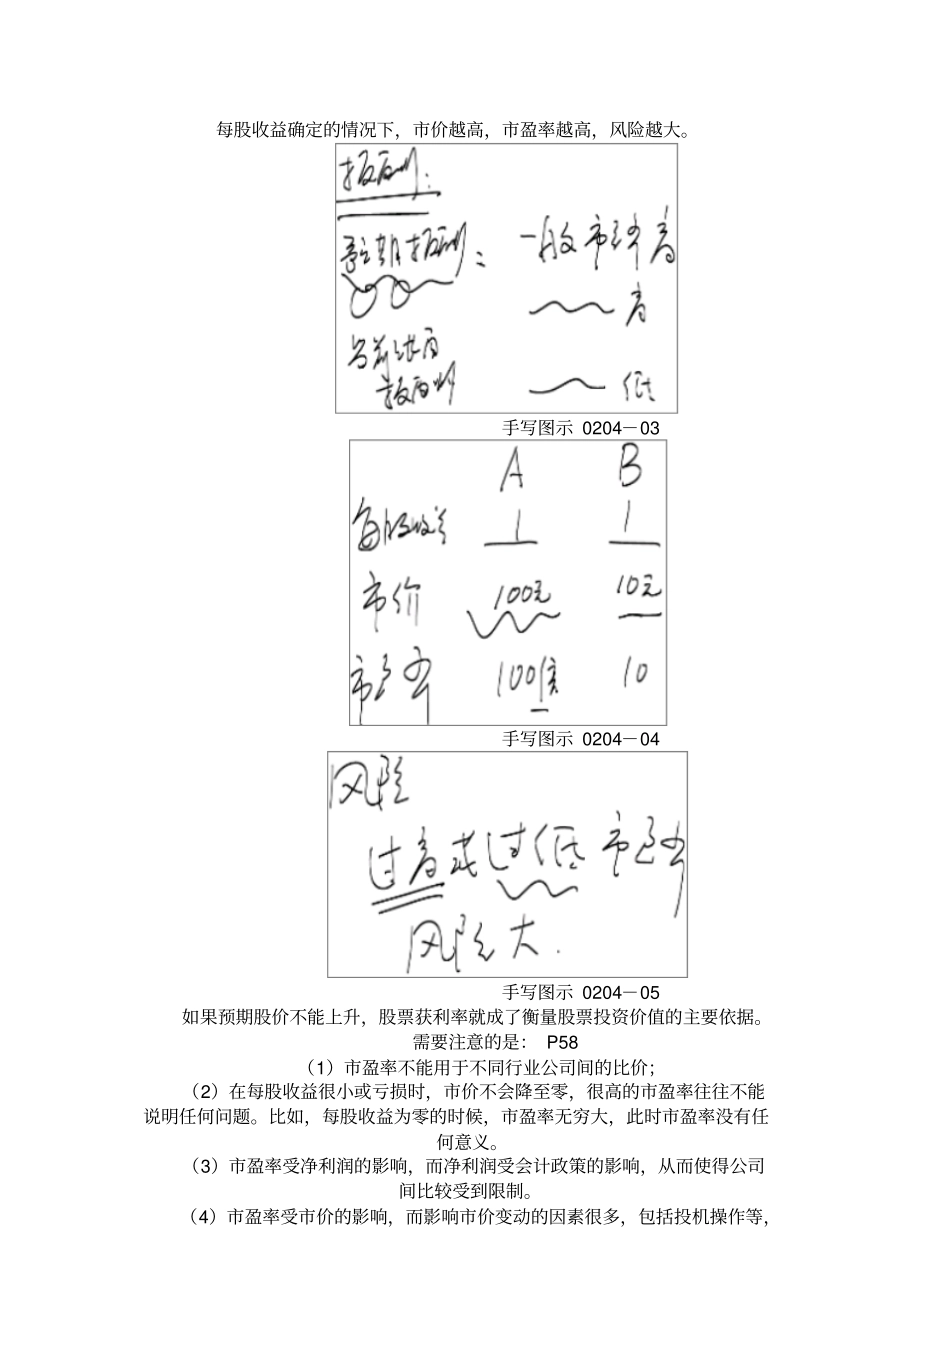 每股收益确定的情况下，市价越高，市盈率越高，风险越大。
报酬：
预期报酬：
一般市盈率高
高
当前投资
报酬
低
手写图示 0204－03
A B
每股收益 1 1
市价 100元 10元
市盈率 100倍 10
手写图示 0204－04
风险
过高或过低市盈率
风险大.
手写图示 0204－05
如果预期股价不能上升，股票获利率就成了衡量股票投资价值的主要依据。
需要注意的是： P58
（1）市盈率不能用于不同行业公司间的比价；
（2）在每股收益很小或亏损时，市价不会降至零，很高的市盈率往往不能
说明任何问题。比如，每股收益为零的时候，市盈率无穷大，此时市盈率没有任
何意义。
（3）市盈率受净利润的影响，而净利润受会计政策的影响，从而使得公司
间比较受到限制。
（4）市盈率受市价的影响，而影响市价变动的因素很多，包括投机操作等，